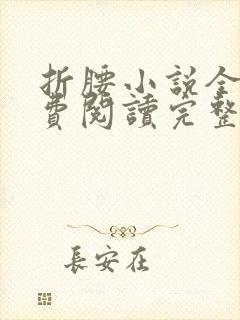 折腰小說全
費閱讀完整
長安在